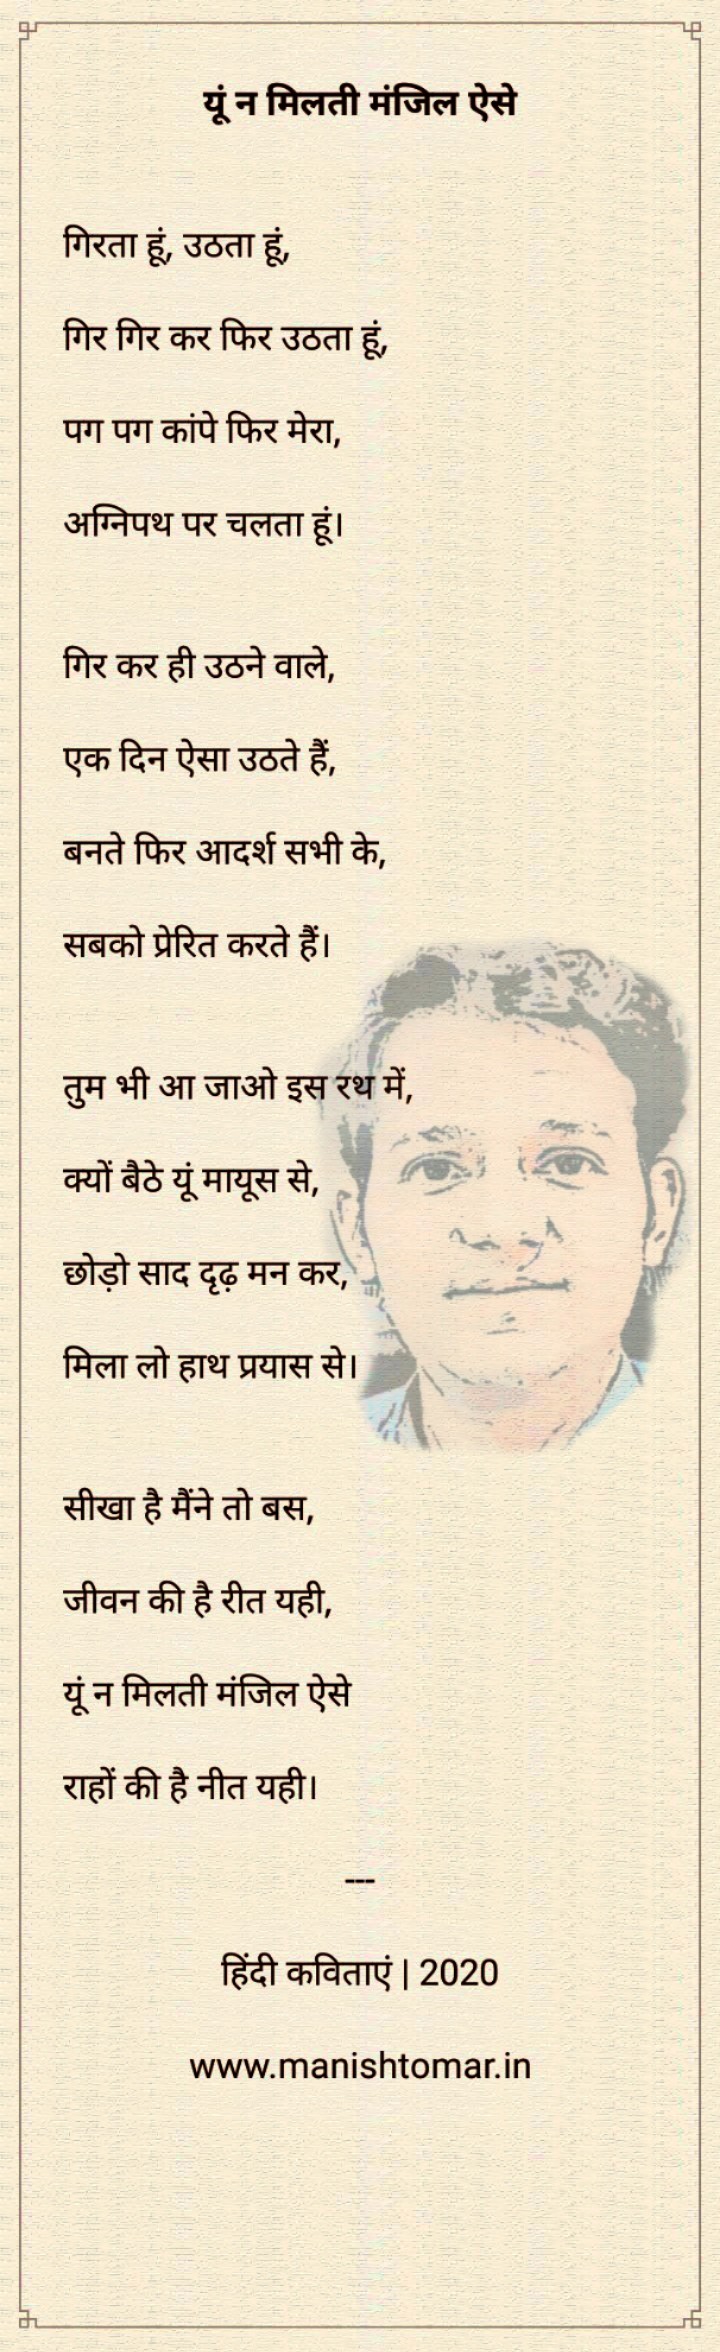 यूं न मिलती मंजिल ऐसे
गिरता हूं, उठता हूं,
गिर गिर कर फिर उठता हूं,
पग पग कांपे फिर मेरा,
अग्निपथ पर चलता हूं।
गिर कर ही उठने वाले,
एक दिन ऐसा उठते हैं,
बनते फिर आदर्श सभी के,
सबको प्रेरित करते हैं।
तुम भी आ जाओ इस रथ में,
क्यों बैठे यूं मायूस से,
छोड़ो साद दृढ़ मन कर,
मिला लो हाथ प्रयास से।
सीखा है मैंने तो बस,
जीवन की है रीत यही,
यूं न मिलती मंजिल ऐसे
राहों की है नीत यही।
---
हिंदी कविताएं | 2020
www.manishtomar.in